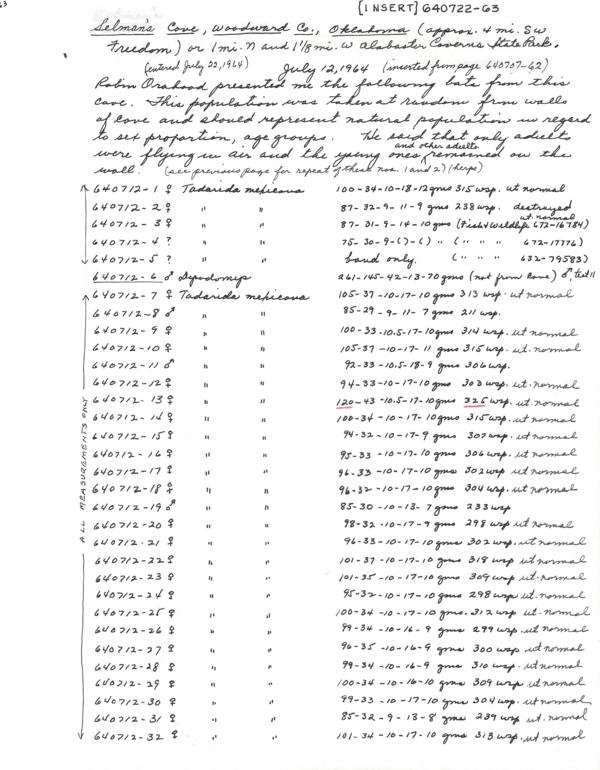 63
[INSERT] 640722-63
Selman's Cave, Woodward Co., Oklahoma (approx. 4 mi. SW
Freedom) or 1 mi. N and 1 1/8 mi. W Alabaster Caverns State Park.
(entered July 22, 1964) July 12, 1964 (inserted from page 640707-62)
Robin Orahood presented me the following bats from this
cave. This population was taken at random from walls
of cave and should represent natural population in regard
to sex proportion, age groups. He said that only adults
were flying in air and the young ones and other adults remained on the
wall. (see previous page for repeat of these nos. 1 and 2) (herps)
640712-1 ♀ Tadarida mexicana 100-34-10-18-12 gms 315 wsp. ut normal
640712-2 ♀ " " 87-32-9-11-9 gms 238 wsp. destroyed
640712-3 ♀ " " 87-31-9-14-10 gms (Fish & Wildlife 672-16784) ut. normal
640712-4 ? " " 75-30-9-( )-( ) " ( " " " 672-17776)
640712-5 ? " " band only. ( " " " 632-79583)
640712-6 ♂ Dipodomys 261-145-42-13-70 gms (not from cave) ♂, test 11
640712-7 ♀ Tadarida mexicana 105-37-10-17-10 gms 313 wsp. ut normal
640712-8 ♂ " " 85-29-9-11-7 gms 211 wsp.
640712-9 ♀ " " 100-33-10.5-17-10 gms 314 wsp. ut normal
640712-10 ♀ " " 105-37-10-17-11 gms 315 wsp. ut. normal
640712-11 ♂ " " 92-33-10.5-18-9 gms 306 wsp.
640712-12 ♀ " " 94-33-10-17-10 gms 303 wsp. ut normal
640712-13 ♀ " " 120-43-10.5-17-10 gms 325 wsp. ut. normal
640712-14 ♀ " " 100-34-10-17-10 gms 315 wsp. ut normal
640712-15 ♀ " " 94-32-10-17-9 gms 307 wsp. ut normal
640712-16 ♀ " " 95-33-10-17-10 gms 306 wsp. ut normal
640712-17 ♀ " " 96-33-10-17-10 gms 302 wsp ut normal
640712-18 ♀ " " 96-32-10-17-10 gms 304 wsp. ut normal
640712-19 ♂ " " 85-30-10-13-7 gms 233 wsp
640712-20 ♀ " " 98-32-10-17-9 gms 298 wsp ut normal
640712-21 ♀ " " 96-33-10-17-10 gms 302 wsp. ut normal
640712-22 ♀ " " 101-37-10-17-10 gms 318 wsp ut normal
640712-23 ♀ " " 101-35-10-17-10 gms 309 wsp ut-normal
640712-24 ♀ " " 95-32-10-17-10 gms 298 wsp ut. normal
640712-25 ♀ " " 100-34-10-17-10 gms. 312 wsp ut. normal
640712-26 ♀ " " 99-34-10-16-9 gms 299 wsp ut. normal
640712-27 ♀ " " 96-35-10-16-9 gms 300 wsp ut normal
640712-28 ♀ " " 99-34-10-16-9 gms 310 wsp. ut normal
640712-29 ♀ " " 100-34-10-16-10 gms 309 wsp ut normal
640712-30 ♀ " " 99-33-10-17-10 gms 304 wsp. ut normal
640712-31 ♀ " " 85-32-9-13-8 gms 239 wsp ut. normal
640712-32 ♀ " " 101-34-10-17-10 gms 313 wsp. ut normal
ALL MEASUREMENTS ONLY